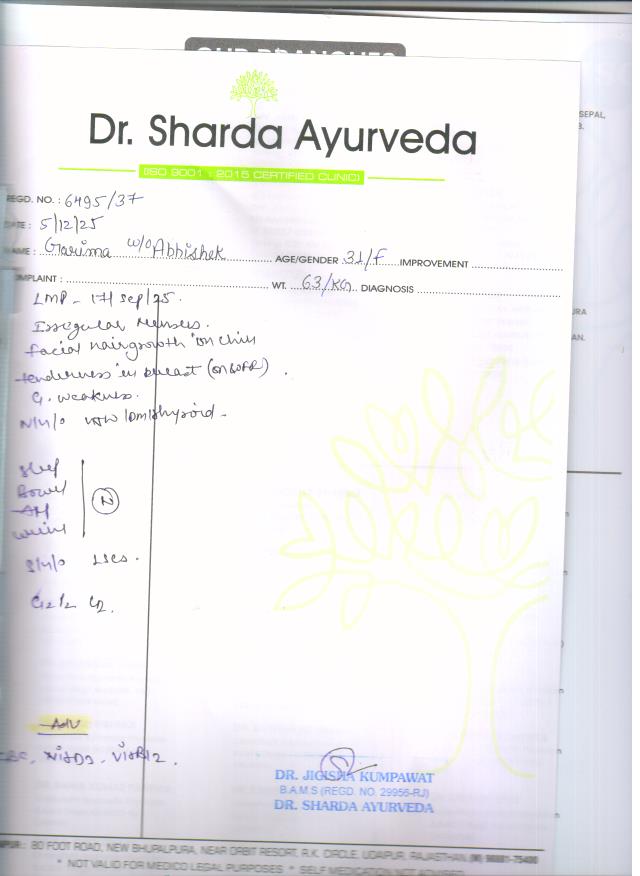 OUR BRANCHES
SEPAL,
Dr. Sharda Ayurveda
(ISO 9001 : 2015 CERTIFIED CLINIC)
REGD. NO. : 6495/37
DATE : 5/12/25
NAME : Garima w/o Abhishek AGE/GENDER 31/F IMPROVEMENT
COMPLAINT : WT. 63/KG DIAGNOSIS
LMP - 17/Sep/25.
Irregular Menses.
facial hairgrowth on chin
tenderness in breast (on &
G. weakness.
N/H/O DM/thyroid -
Sleep
Bowel
N
Urine
S/H/O LSCS.
G2P2 L2.
Adv
CBC, Vit D3 - Vit B12.
DR. JIGISHA KUMPAWAT
B.A.M.S (REGD. NO. 29956-RJ)
DR. SHARDA AYURVEDA
80 FOOT ROAD, NEW BHUPALPURA, NEAR ORBIT RESORT, R.K. CIRCLE, UDAIPUR, RAJASTHAN, (M) 98881-75480
* NOT VALID FOR MEDICO LEGAL PURPOSES * SELF MEDICATION NOT ADVISED